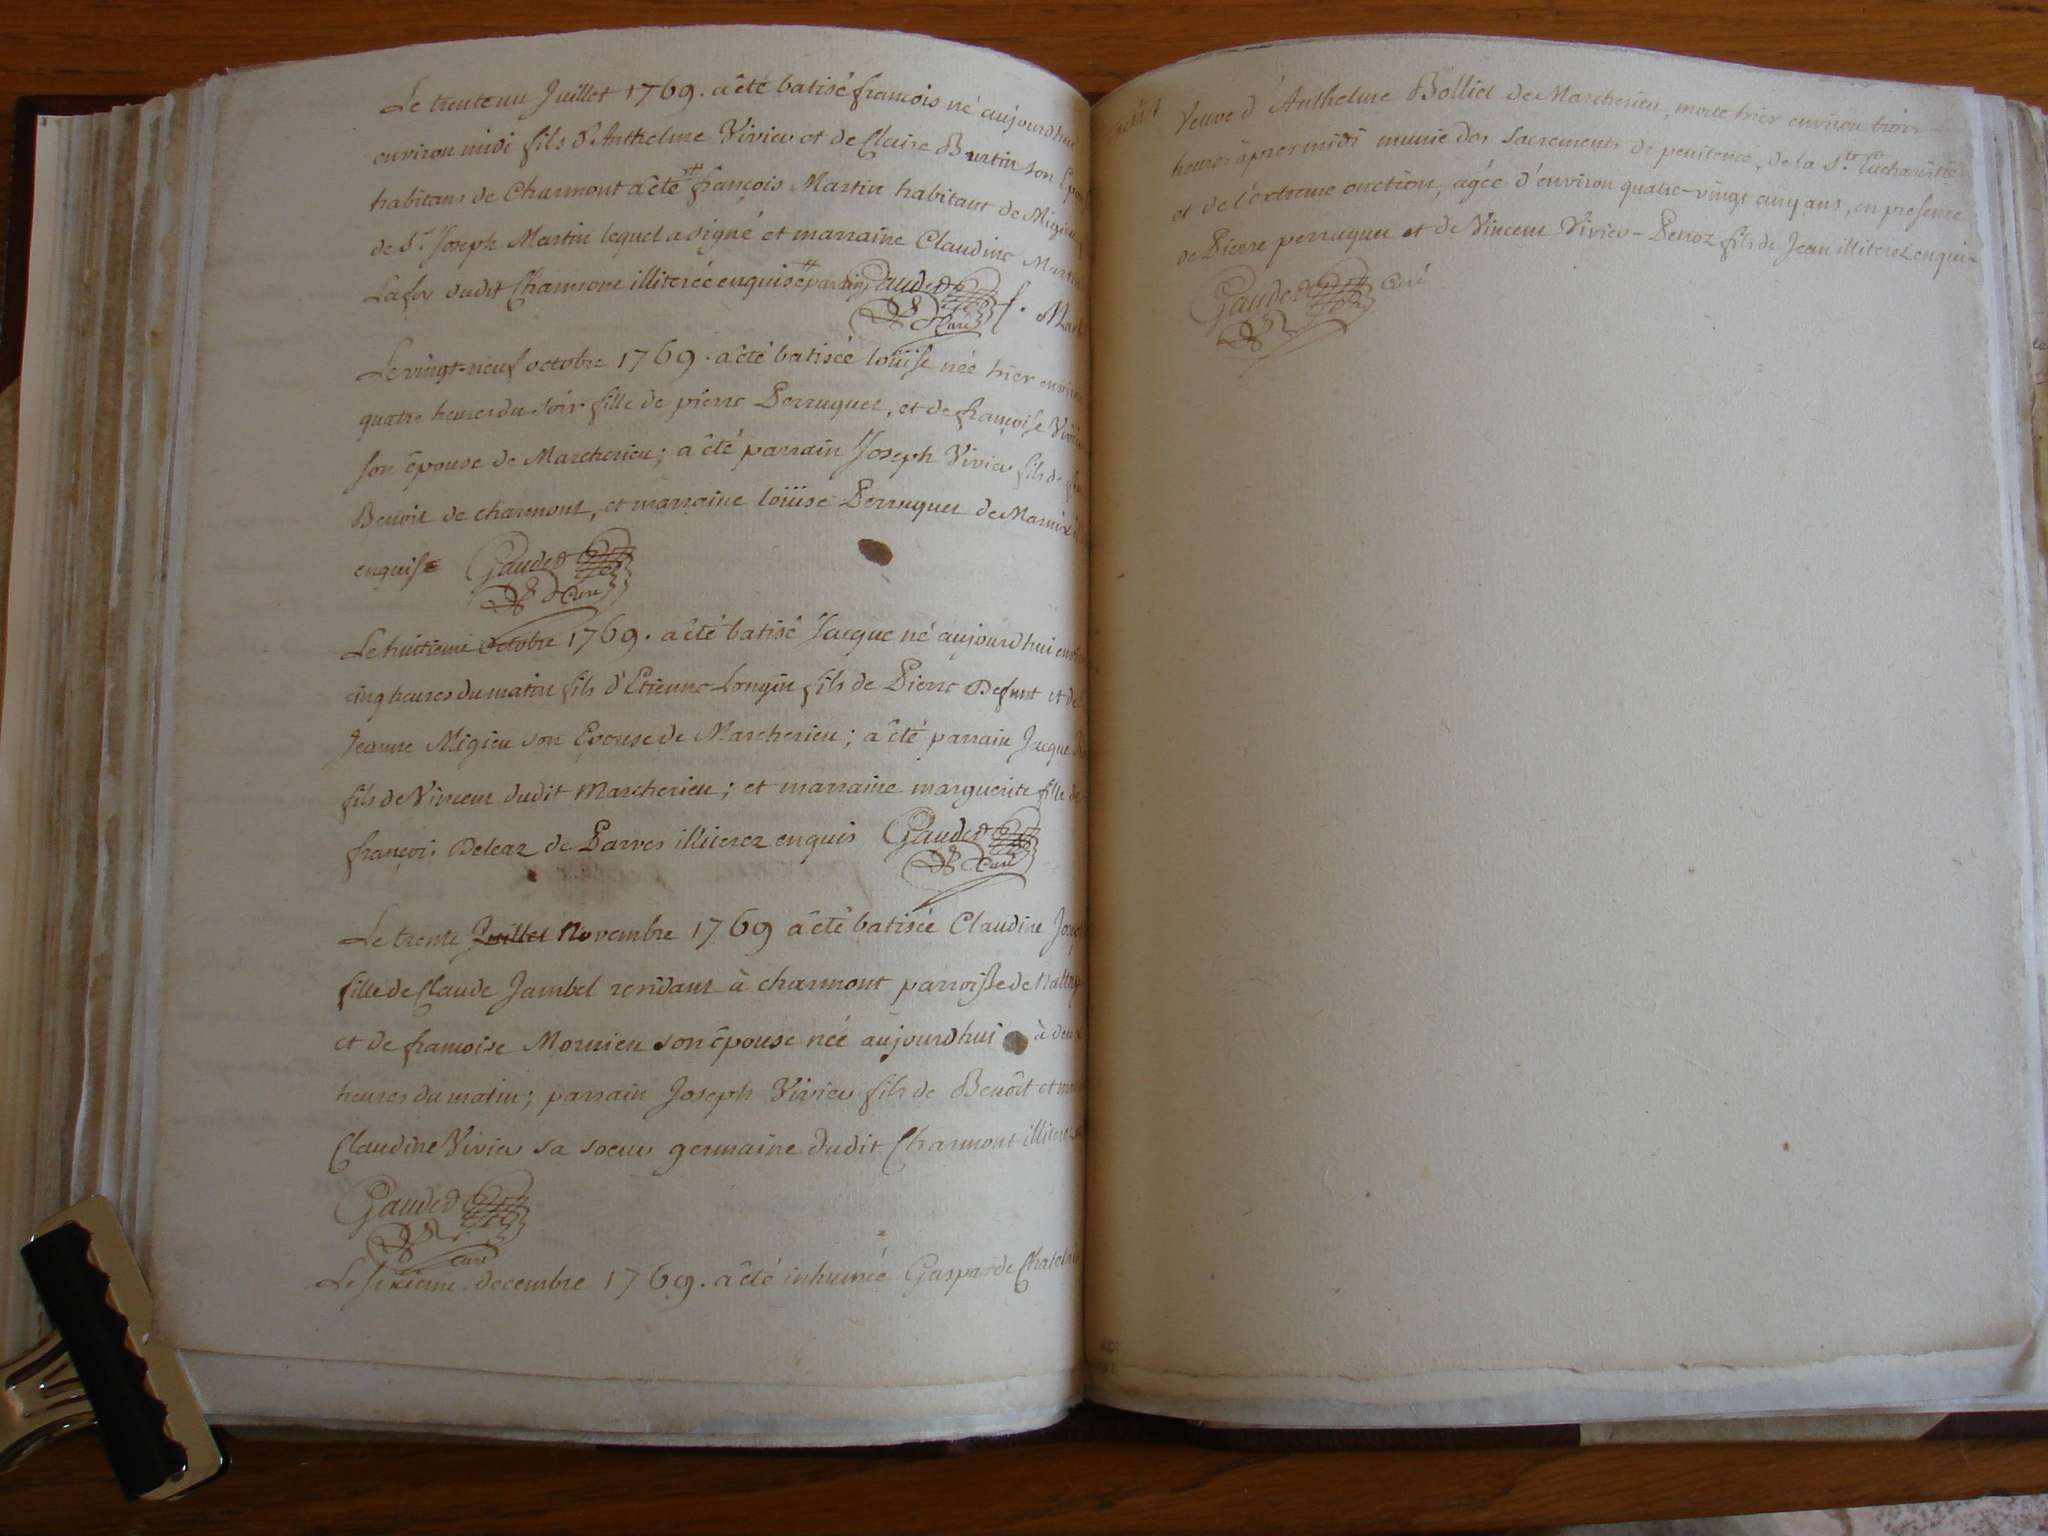 Le trente un Juillet 1769. a êté batisé francois né aujourdhui
environ midi fils d'Anthelme Vivieu et de Claire Burtin son Epouse
habitans de Charmont a êté # françois Martin habitant de Migieu
de St Joseph Martin lequel a signé et marraine Claudine
Lafor dudit Charmont illiterée enquise # parain Gaudet f. Mart
Curé
Le vingt-neuf octobre 1769. a êté batisée loüise née hier environ
quatre heures du soir fille de pierre Perruquet, et de françoise
son épouse de Marcherieu; a êté parrain Joseph Vivieu fils de
Benoit de charmont, et marraine loüise Perruquet de
enquise Gaudet
Curé
Le huitieme octobre 1769. a êté batisé Jacque né aujourdhui
cinq heures du matin fils d'Etienne Longin fils de Pierre Defunt et de
Jeanne Migieu son Epouse de Marcherieu; a êté parrain Jacque
fils de Vincent dudit Marcherieu; et marraine marguerite fille de
françois Deleaz de Parves illiterez enquis Gaudet
Curé
Le trente Juillet Novembre 1769 a êté batisée Claudine
fille de Claude Jambet residant à charmont parroisse de
et de francoise Mornieu son épouse née aujourdhui à deux
heures du matin; parrain Joseph Vivieu fils de Benoît et
Claudine Vivieu sa soeur germaine dudit Charmont
Gaudet
Curé
Le sixieme decembre 1769. a êté inhumée Gasparde
Veuve d'Anthelme Bolliet de Marcherieu, morte hier environ trois
heures âpres midi munie des Sacrements de penitence, de la Ste Eucharistie
et de l'extreme onction, agée d'environ quatre-vingt cinq ans, en presence
de Pierre perruquet et de Vincent Vivieu-Perroz fils de Jean illiterez enquis
Gaudet Curé